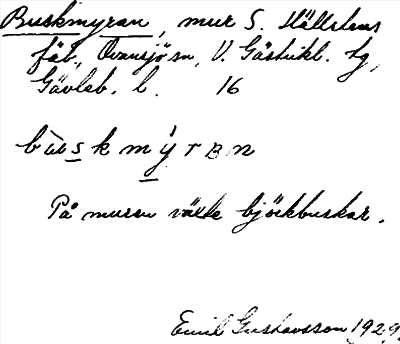 Buskmyran, mur S. Hällstens
fäb, Ovansjö sn, V. Gästrikl. tg,
Gävleb. l. 16
bùskmýrʙn
På muren växte björkbuskar.
Emil Gustavsson 1929.